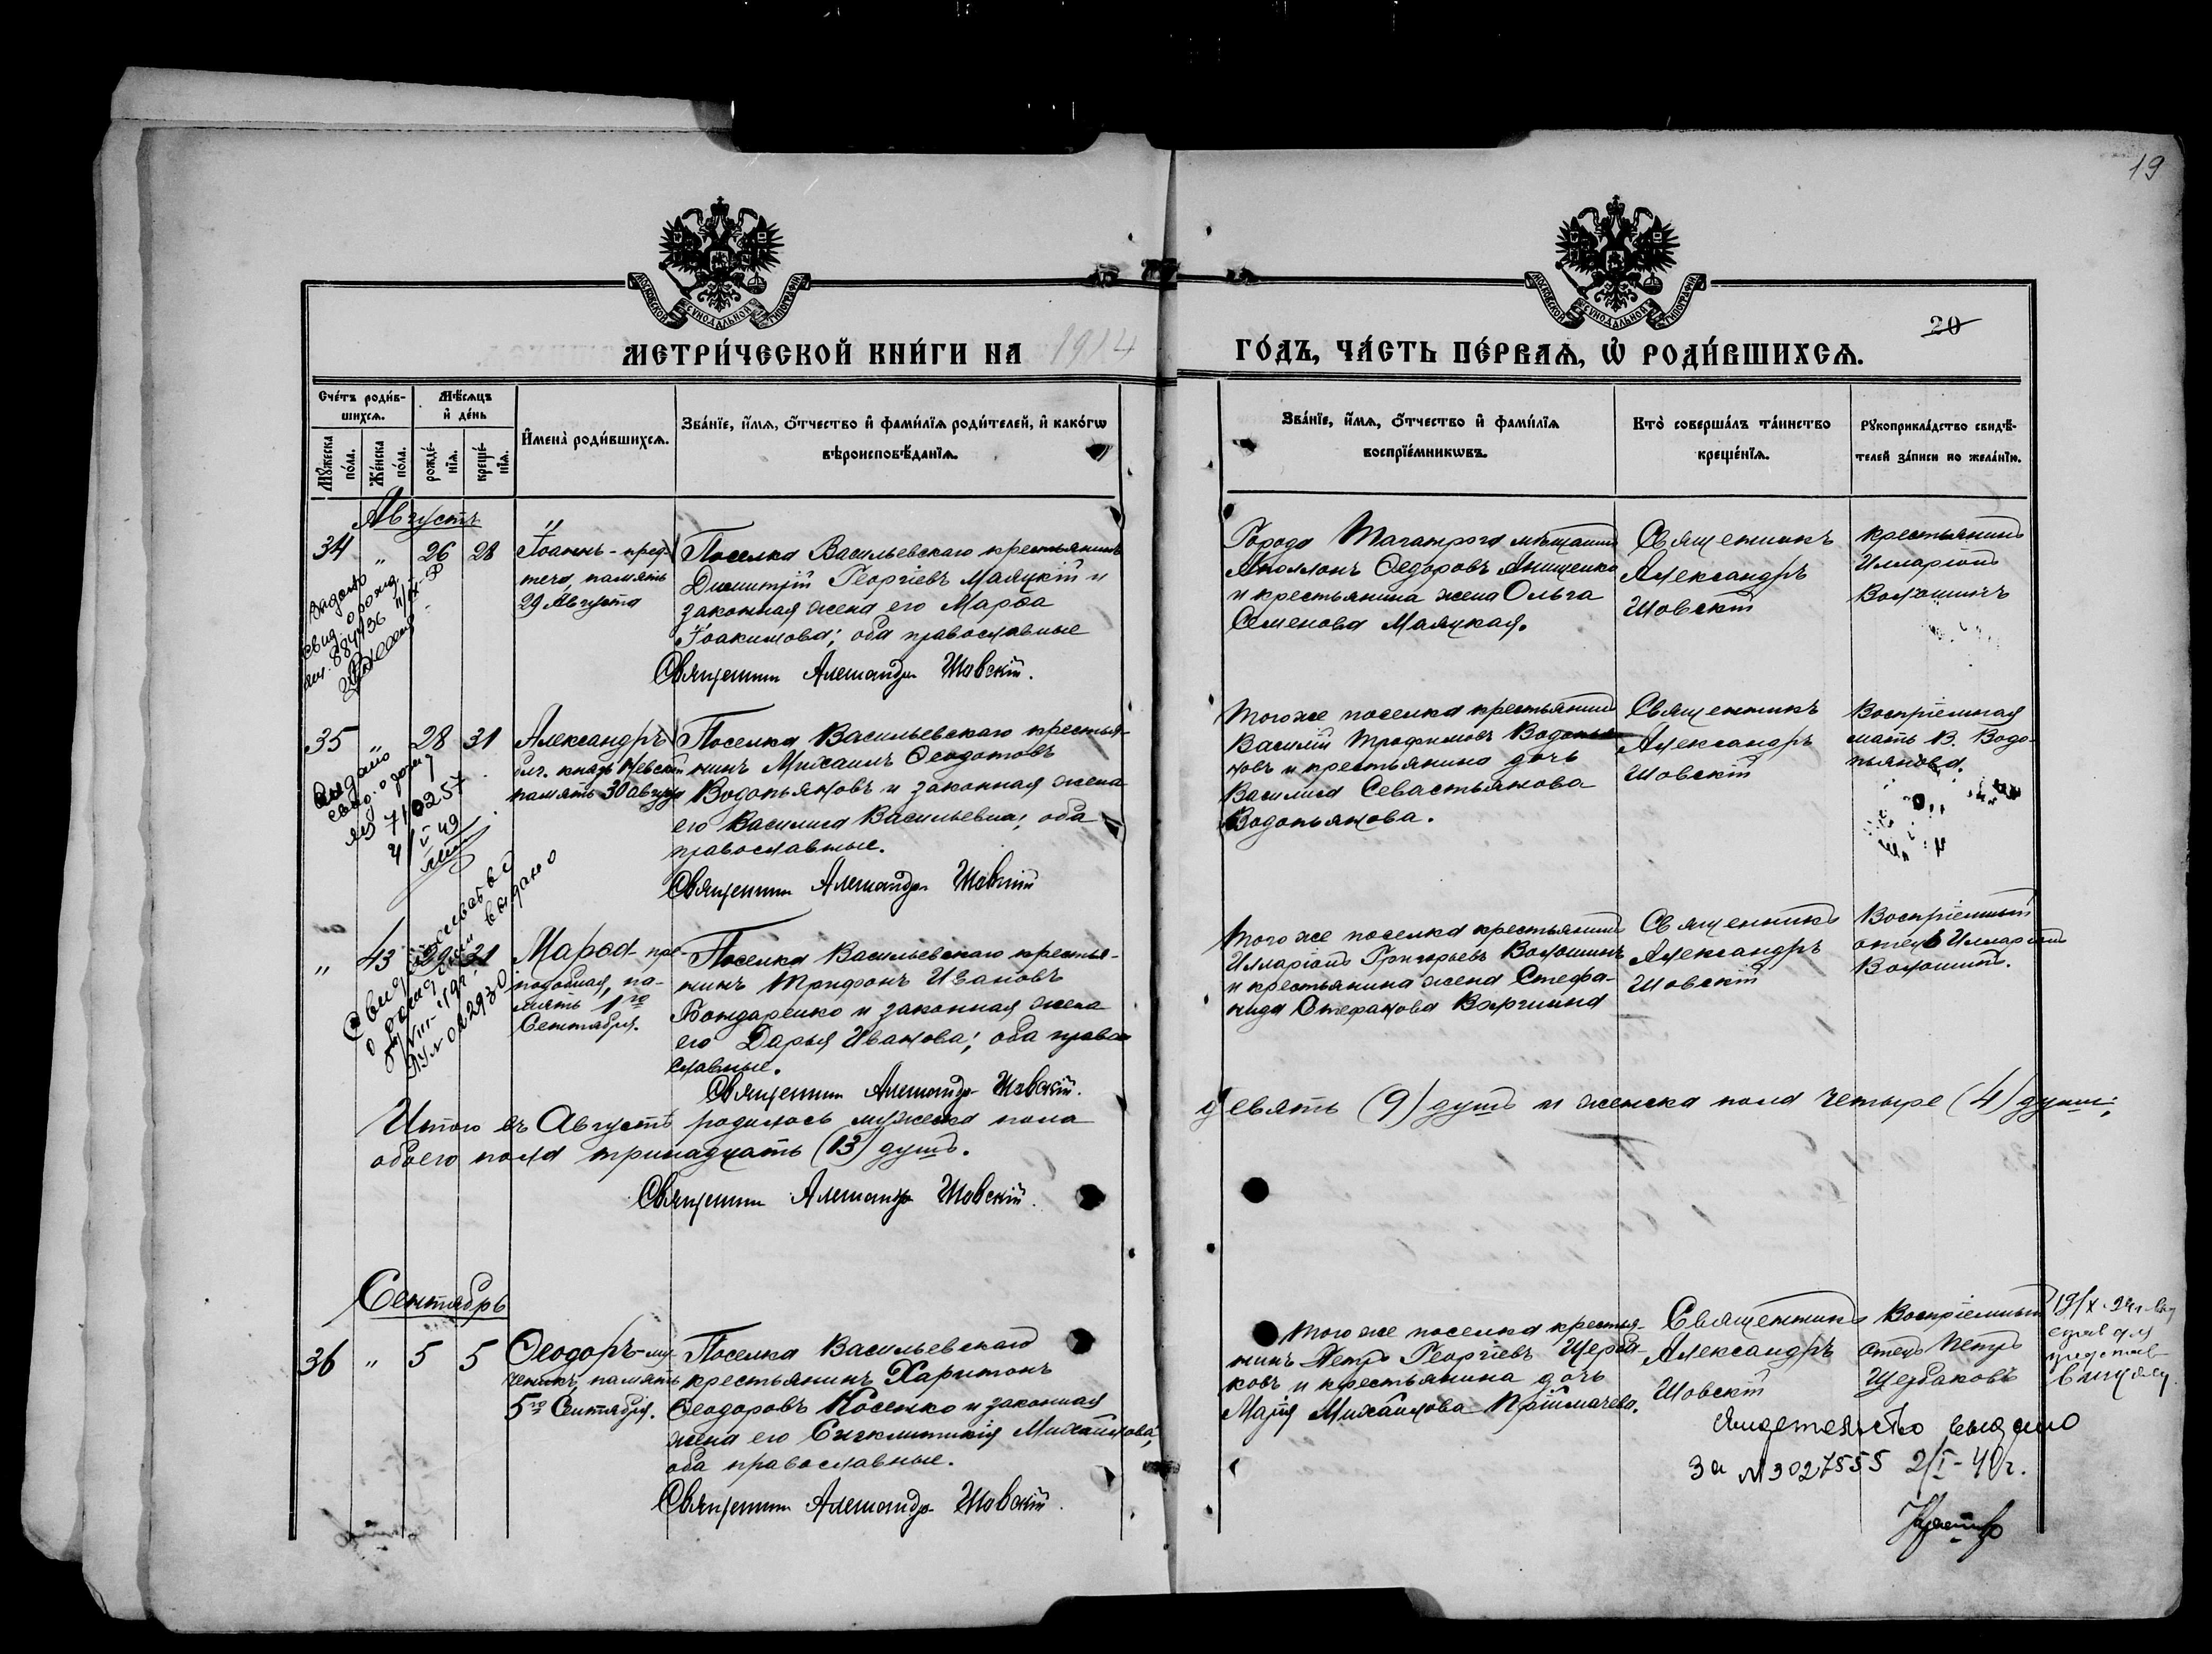 19
20
МОСКОВСКОЙ СУНОДАЛЬНОЙ ТИПОГРАФІИ
МОСКОВСКОЙ СУНОДАЛЬНОЙ ТИПОГРАФІИ
МЕТРИ́ЧЕСКОЙ КНИ́ГИ НА 1914
ГО́ДЪ, ЧА́СТЬ ПЕ́РВАѦ, Ѡ҆ РОДИ́ВШИХСѦ.
Сче́тъ роди́в-
шихсѧ.
Мѣ́сѧцъ
и҆ де́нь
Мꙋ́жеска
по́ла.
Же́нска
по́ла.
рожде́-
нїѧ.
креще́-
нїѧ.
И҆мена̀ роди́вшихсѧ.
Зва́нїе, и҆́мѧ, ѻ҆́тчество и҆ фами́лїѧ роди́телей, и҆ како́гѡ
вѣроисповѣ́данїѧ.
Зва́нїе, и҆́мѧ, ѻ҆́тчество и҆ фами́лїѧ
воспрїе́мникѡвъ.
Кто̀ соверша́лъ та́инство
креще́нїѧ.
Рꙋкоприкла́дство свидѣ́-
телей за́писи по жела́нїю.
Августъ
34 " 26 28
Іоаннъ-пред-
теча, память
29 Августа
Поселка Васильевскаго крестьянинъ
Димитрій Георгіевъ Маяцкій и
законная жена его Марѳа
Іоакимова; оба православные
Священникъ Александръ Шовскій.
Города Таганрога мѣщанинъ
Аполлонъ Ѳедоровъ Анищенко
и крестьянина жена Ольга
Семенова Маяцкая.
Священникъ
Александръ
Шовскій
крестьянинъ
Илларіонъ
Волошинъ
Выдано
свид. о рожд.
35 " 28 31
Александръ
блг. князь Невскій
память 30 августа
Поселка Васильевскаго крестья-
нинъ Михаилъ Ѳеодотовъ
Водопьяновъ и законная жена
его Василиса Васильевна; оба
православные.
Священникъ Александръ Шовскій
Того же поселка крестьянинъ
Василій Трофимовъ Водопья-
новъ и крестьянина дочь
Василиса Севастьянова
Водопьянова.
Священникъ
Александръ
Шовскій
Воспріемная
мать В. Водо-
пьянова.
Выдано
свид. о рожд
№ 710257
4/V 49
" 43 29 31
Марѳа-пре-
подобная, па-
мять 1го
Сентября.
Поселка Васильевскаго крестья-
нинъ Трифонъ Ивановъ
Бондаренко и законная жена
его Дарья Иванова; оба право-
славные.
Священникъ Александръ Шовскій.
Того же поселка крестьянинъ
Илларіонъ Григорьевъ Волошинъ
и крестьянина жена Стефа-
нида Стефанова
Священникъ
Александръ
Шовскій
Воспріемный
отецъ Илларіонъ
Волошинъ.
Итого въ Августѣ родилось мужеска пола
девять (9) душъ и женска пола четыре (4) души;
обоего пола тринадцать (13) душъ.
Священникъ Александръ Шовскій.
Сентябрь
36 " 5 5
Ѳеодоръ-му-
ченикъ, память
5го Сентября.
Поселка Васильевскаго
крестьянинъ Харитонъ
Ѳеодоровъ Косенко и законная
жена его Синклитикія Михайлова;
оба православные.
Священникъ Александръ Шовскій.
Того же поселка крестья-
нинъ Петръ Георгіевъ Щерба-
ковъ и крестьянина дочь
Марія Михайлова
Священникъ
Александръ
Шовскій
Воспріемный
отецъ Петръ
Щербаковъ
Свидетельство выдано
за № 3027555 2/I-40г.